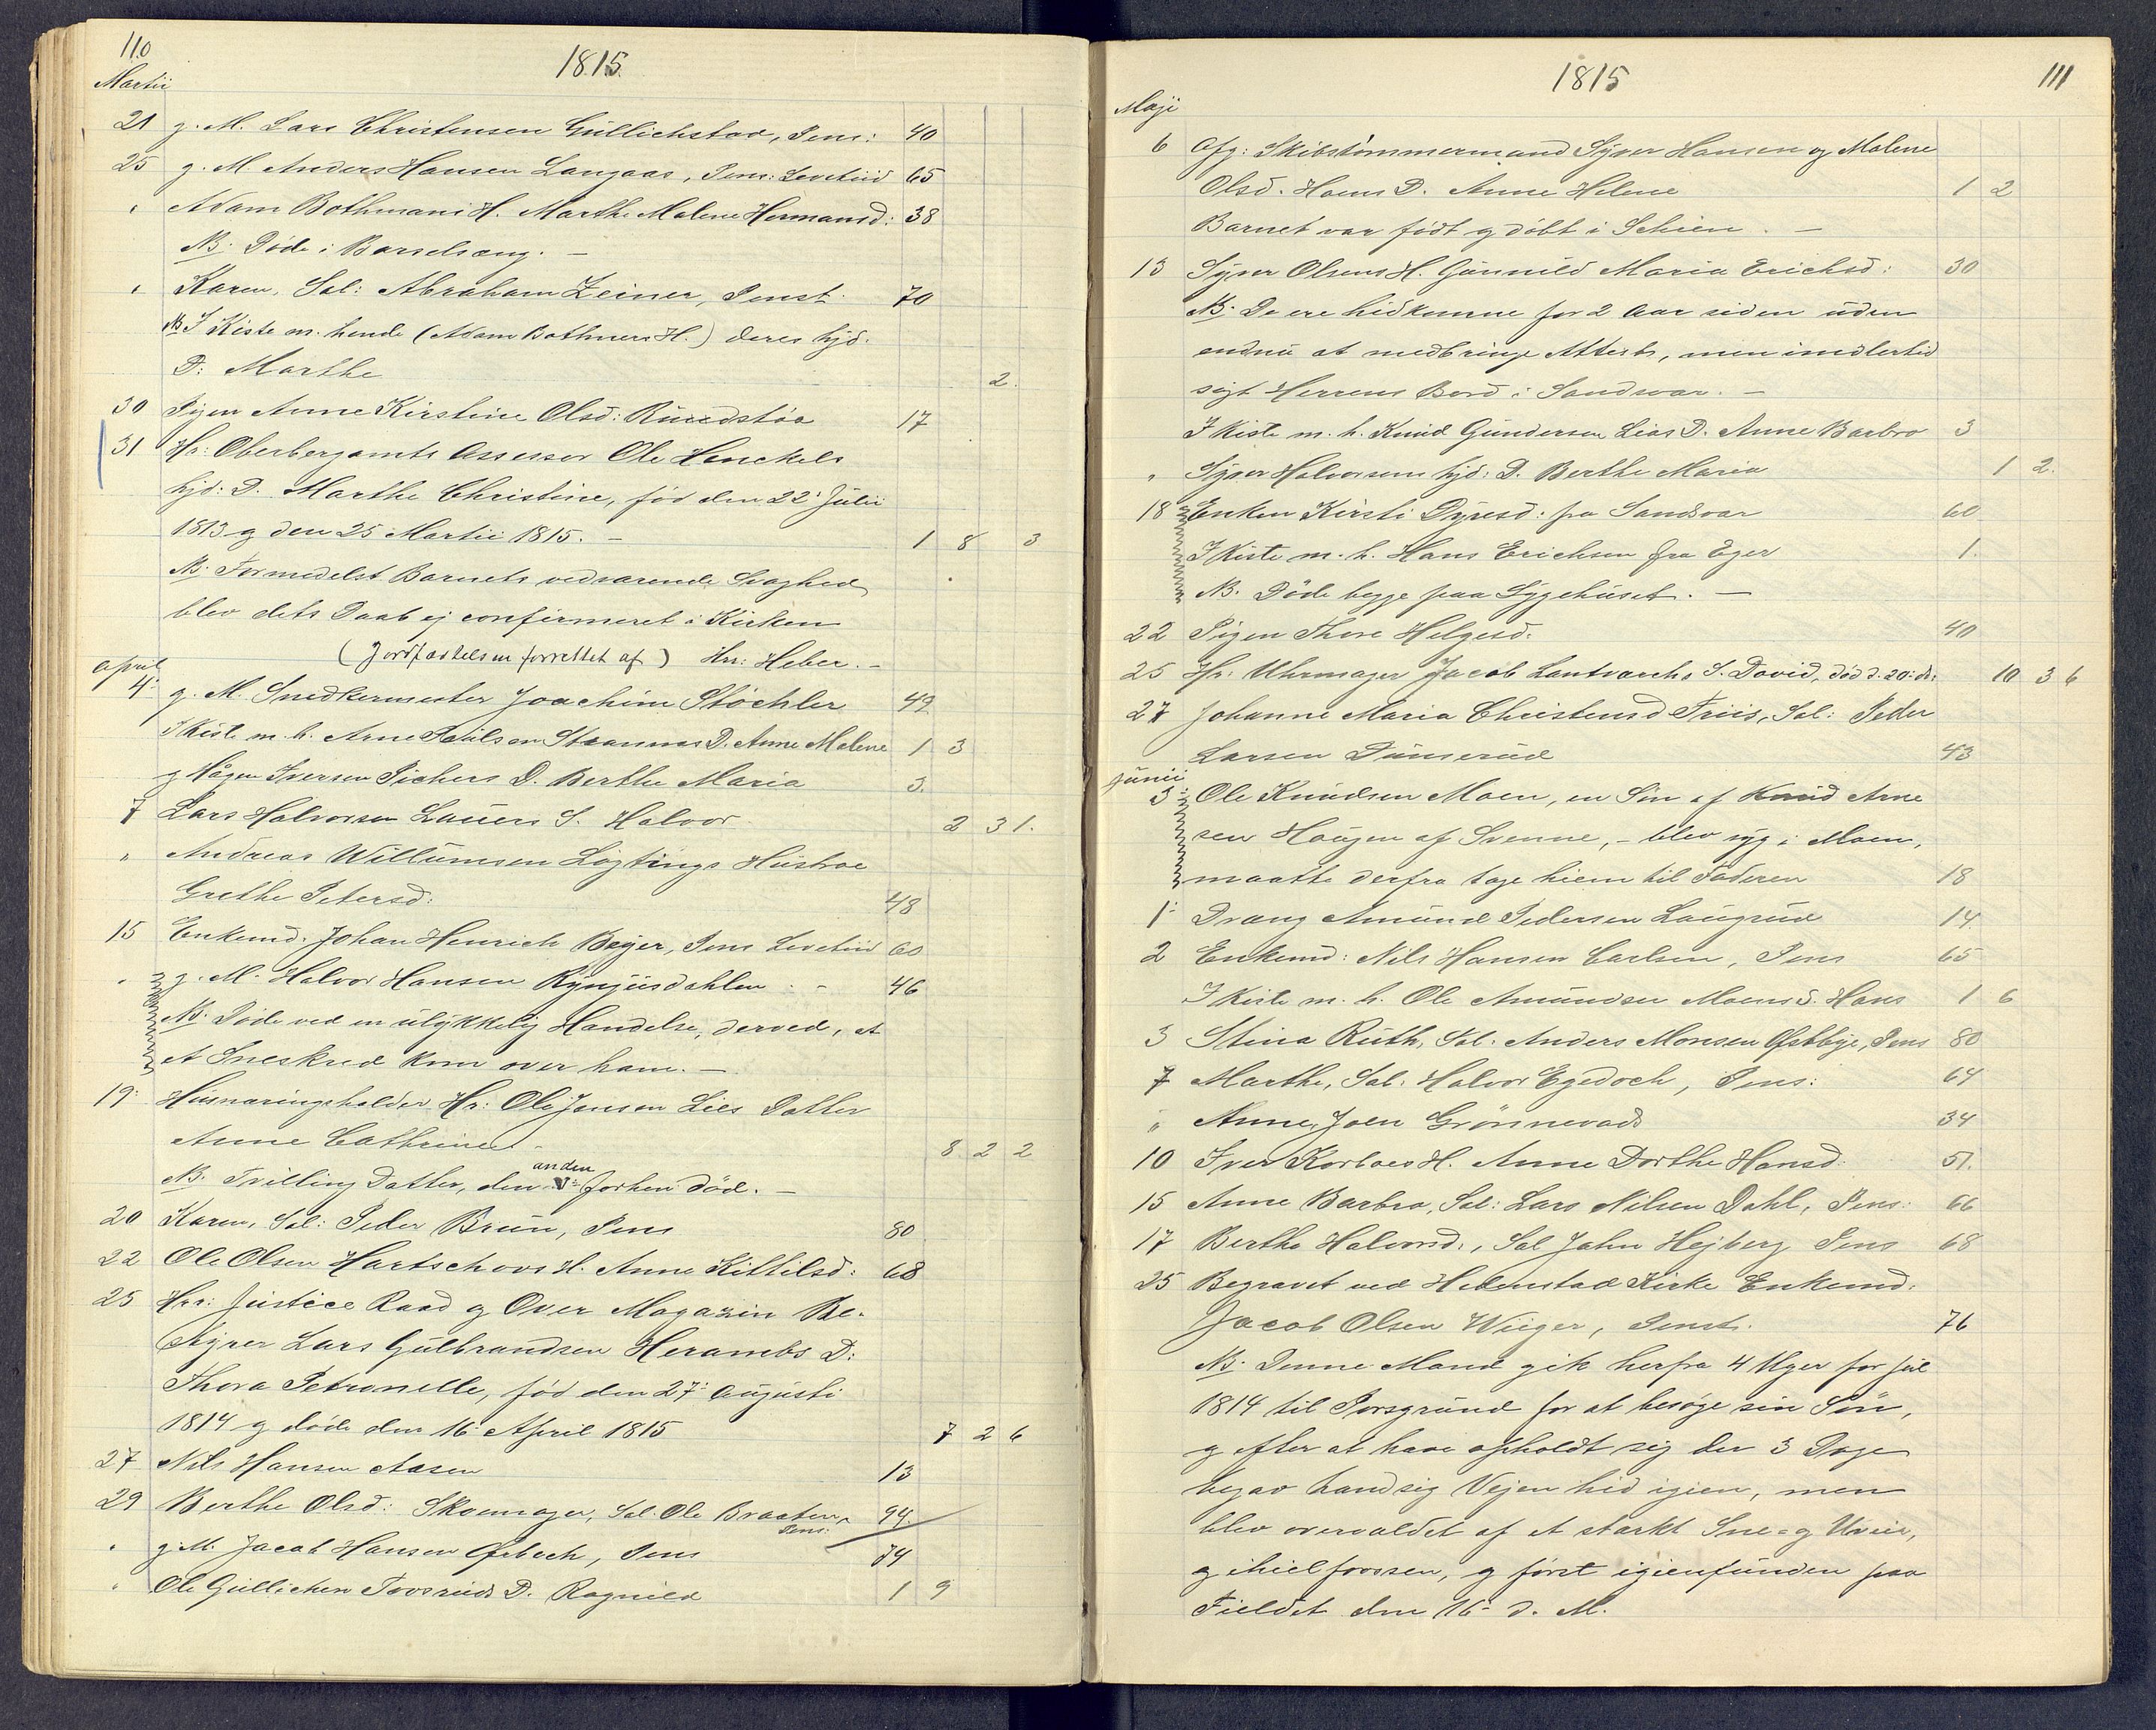 110
1815
Martii
21 g. M. Lars Christensen Güllichstad, Pens: 40
25 g. M. Anders Hansen Langaas, Pens: Levetiid 65
" Adam Bothmans H. Marthe Malene Hermansd: 38
NB. Döde i Barselseng. —
" Karen, Sal: Abraham Zeiner, Penst. 70
NB I Kiste m. hende (Adam Bothners H.) deres hjd.
D: Marthe 2.
30 Pigen Anne Kirstine Olsd: Rundstöa 17
31 Hr: Oberbergamts Assessor Ole Henckels
hjd: D. Marthe Christine, föd den 22: Julii
1813 g den 25 Martii 1815. — 1 8 3
NB. Formedelst Barnets vedvarende Svaghed
blev dets Daab ej confirmeret i Kirken
(Jordfæstelsen forrettet af) Hr: Heber. —
April
4: g. M. Snedkermester Joachim Stöchler 49
I Kiste m. h. Arne Paulsen Straanæs D. Anne Malene 1 3
g Hågen Iversen Pichers D. Berthe Maria 3.
7 Lars Halvorsen Lauers S. Halvor 2 3 1.
" Andreas Willumsen Lögtings Hustroe
Grethe Petersd: 48
15 Enkemd. Johan Henrich Beyer, Pens Levetiid 60
" g. M. Halvor Hansen Ryngiisdahlen . — 46
NB. Döde ved en ulykkelig Handelse, derved, at
et Sneskred kom over ham. —
19: Husnaringsholder Hr: Ole Jensen Lies Datter
Anne Cathrine — 8 2 2
NB. Tvilling Datter, den anden forhen död. —
20 Karen, Sal: Peder Brün, Pens 80
22 Ole Olsen Hartschovs H. Anne Kittilsd: 68
25 Hrr: Justice Raad g Over Magazin Be-
styrer Lars Gulbrandsen Herambs D:
Thora Petronelle, föd den 27: Augusti
1814 g döde den 16 April 1815 7 2 6
27 Nils Hansen Aasen 13
29 Berthe Olsd: Skoemager, Sal. Ole Braaten, Pens: 94.
" g. M. Jacob Hansen Ösebech, Pens 74
" Ole Gullichsen Tovsruds D. Ragnild 1 9
1815
111
Maji
6 Afg: Skibstömmermand Syver Hansen og Malene
Olsd. Haens D. Anne Helene 1 2
Barnet var födt g döbt i Schien. —
13 Syver Olsens H. Gunnild Maria Erichsd: 30
NB: De ere hidkomne for 2 Aar siden uden
endnu at medbringe Attests, men imidlertid
sögt Herrens Bord i Sandsvær. —
I Kiste m. h. Knud Gundersen Lias D. Anne Barbro 3
" Syver Halvorsens hjd: D. Berthe Maria 1 2.
18 Enken Kirsti Dyresd: fra Sandsvar 60
I Kiste m. h. Hans Erichsen fra Eger 1.
NB. Döde begge paa Sygehuset. —
22 Pigen Thore Helgesd. 40
25 Hr: Uhrmager Jacob Lantvarchs S. David, död d. 20: ds: 10 3 6
27 Johanne Maria Christensd Friis, Sal: Peder
Larsen Dunserud 43
Junii
3: Ole Knudsen Moen, en Sön af Knud Arne
sen Haugen af Svenne, — blev syg i Moen,
maatte derfra tage hiem til Faderen 18
1: Dreng Amund Pedersen Laugrud 14.
2 Enkemd: Nils Hansen Carlsen, Pens 65
I Kiste m. h. Ole Amundsen Moens S. Hans 1 6
3 Stina Ruth, Sal. Anders Monsen Östbye, Pens 80
7 Marthe, Sal. Halvor Egedoch, Pens: 64
" Anne, Joen Grönnevads 34
10 Iver Korboes H. Anne Dorthe Hansd. 51.
15 Anne Barbra, Sal: Lars Nilsen Dahl, Pens: 66
17 Berthe Halvorsd:, Sal John Hejberg Pens 68
25 Begravet ved Hedenstad Kirke Enkemd:
Jacob Olsen Wiiger, Penst. 76
NB. Denne Mand gik herfra 4 Uger for Jul
1814 til Porsgrund for at besöge sin Sön,
g efter at have opholdt sig der 3 Dage
begav hand sig Vejen hid igien, men
blev overvaldet af et stærkt Sne- g Uveir,
g ihielfrossen, g först igienfunden paa
Fieldet den 16: d. M.